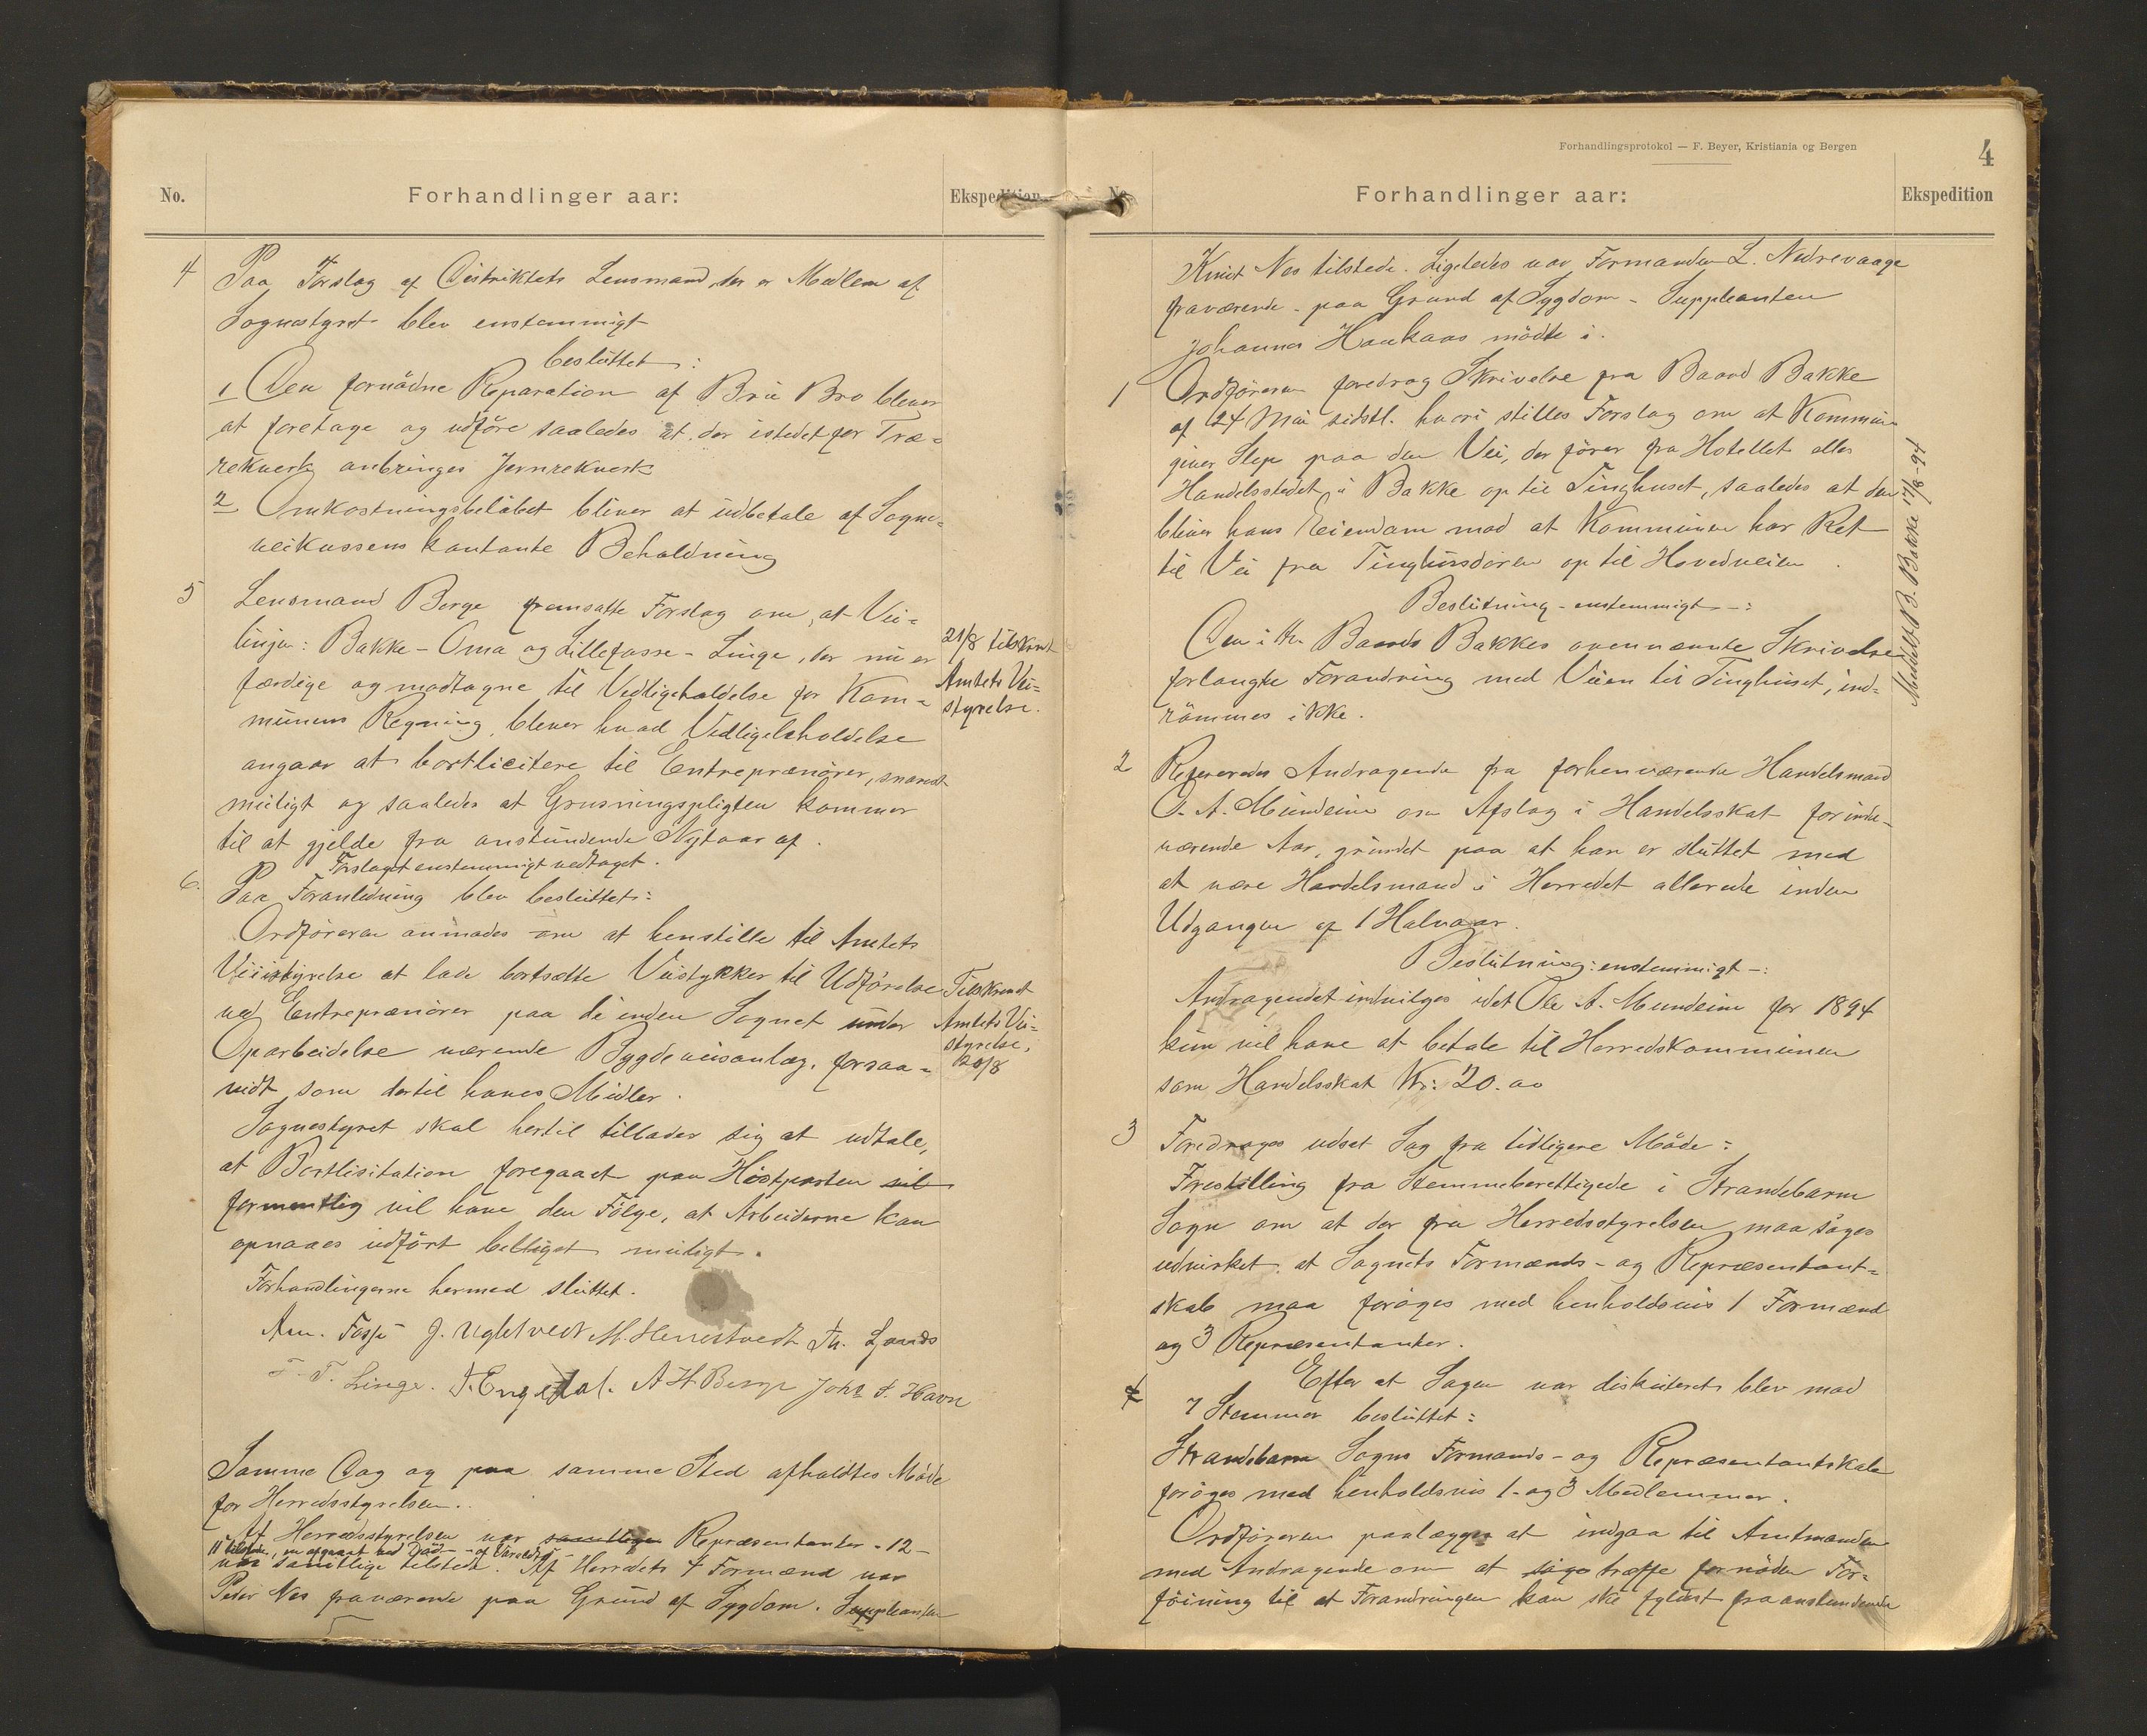 No.
Forhandlinger aar:
Ekspedition
4 Paa Forslag af Distriktets Lensmand, der er Medlem af
Sognestyret blev enstemmigt
besluttet:
1 Den fornödne Reparation af Bru Bro bliver
at foretage og udföre saaledes at der istedetfor Træ-
rekverk anbringes Jernrekverk
2 Omkostningsbelöbet bliver at udbetale af Sogne-
veikassens kontante Beholdning
5 Lensmand Berge fremsatte Forslag om, at Vei-
linjen: Bakke - Oma og Lillefosse - Linge, der nu er
færdige og modtagne til Vedligeholdelse for Kom-
munens Regning, bliver hvad Vedligeholdelse
angaar at bortlicitere til Entreprenörer, snarest
muligt og saaledes at Grusningspligten kommer
til at gjelde fra anstundende Nytaar af.
Forslaget enstemmigt vedtaget.
21/8 tilskrevet
Amtets Vei-
styrelse.
6. Paa Foranledning blev besluttet:
Ordföreren anmodes om at henstille til Amtets
Veistyrelse at lade bortsætte Veistykker til Udförelse
ved Entreprenörer paa de inden Sognet under
Oparbeidelse værende Bygdeveisanlæg, forsaa-
vidt som dertil haves Midler.
Tilskrevet
Amtets Vei-
styrelse,
20/8
Sognestyret skal hertil tillader sig at udtale,
at Bortlisitation foregaaet paa Höstparten vil
formentlig vil have den Fölge, at Arbeiderne kan
opnaaes udfört billigst muligt.
Forhandlingerne hermed sluttet.
Am. Fosse J. Ughetvedt M. Henestvedt Th. Sjonds
T. T. Linge. T. Engedal. A H Berge Johs T. Havn
Samme Dag og paa samme Sted afholdtes Möde
for Herredsstyrelsen.
Af Herredsstyrelsen var samtlige Repræsentanter - 12 -
11 tilstede, en afgaaet ved Död
var samtlige tilstede. Af Herredets 4 Formænd var
Peder Nes fraværende paa Grund af Sygdom. Suppleanten
Forhandlingsprotokol — F. Beyer, Kristiania og Bergen
4
No.
Forhandlinger aar:
Ekspedition
Knut Nes tilstede. Ligeledes var Formanden L. Nedrevaage
fraværende - paa Grund af Sygdom - Suppleanten
Johannes Haukaas mödte i.
1 Ordföreren foredrog Skrivelse fra Baard Bakke
af 24 Mai sidstl. hvori stilles Forslag om at Kommunen
giver Slep paa den Vei, der förer fra Hotellet eller
Handelsstedet i Bakke op til Tinghuset, saaledes at den
bliver hans Eiendom mod at Kommunen har Ret
til Vei fra Tinghusdören op til Hovedveien.
Beslutning - enstemmigt -:
Den i Hr. Baard Bakkes ovennævnte Skrivelse
forlangte Forandring med Veien til Tinghuset, ind-
römmes ikke.
Meddelt B. Bakke 17/8-94
2 Refereredes Andragende fra forhenværende Handelsmand
O. A. Mundeim om Afslag i Handelsskat for inde-
værende Aar, grundet paa at han er sluttet med
at være Handelsmand i Herredet allerede inden
Udgangen af 1 Halvaar.
Beslutning: enstemmigt -:
Andragendet indvilges idet Ole A. Mundeim for 1894
kun vil have at betale til Herredskommunen
som Handelsskat Kr: 20.00
3 Foredroges udsat Sag fra tidligere Möde:
Forestilling fra Stemmeberettigede i Strandebarm
Sogn om at der fra Herredsstyrelsen maa söges
udvirket at Sognets Formands- og Repræsentant-
skab maa foröges med henholdsvis 1 Formand
og 3 Repræsentanter.
Efter at Sagen var diskuteret blev mod
7 Stemmer besluttet:
Strandebarm Sogns Formands- og Repræsentantskab
foröges med henholdsvis 1- og 3 Medlemmer.
Ordföreren paalægges at indgaa til Amtmanden
med Andragende om at söge træffe fornöden For-
föining til at Forandringen kan ske fyldest fra anstundende